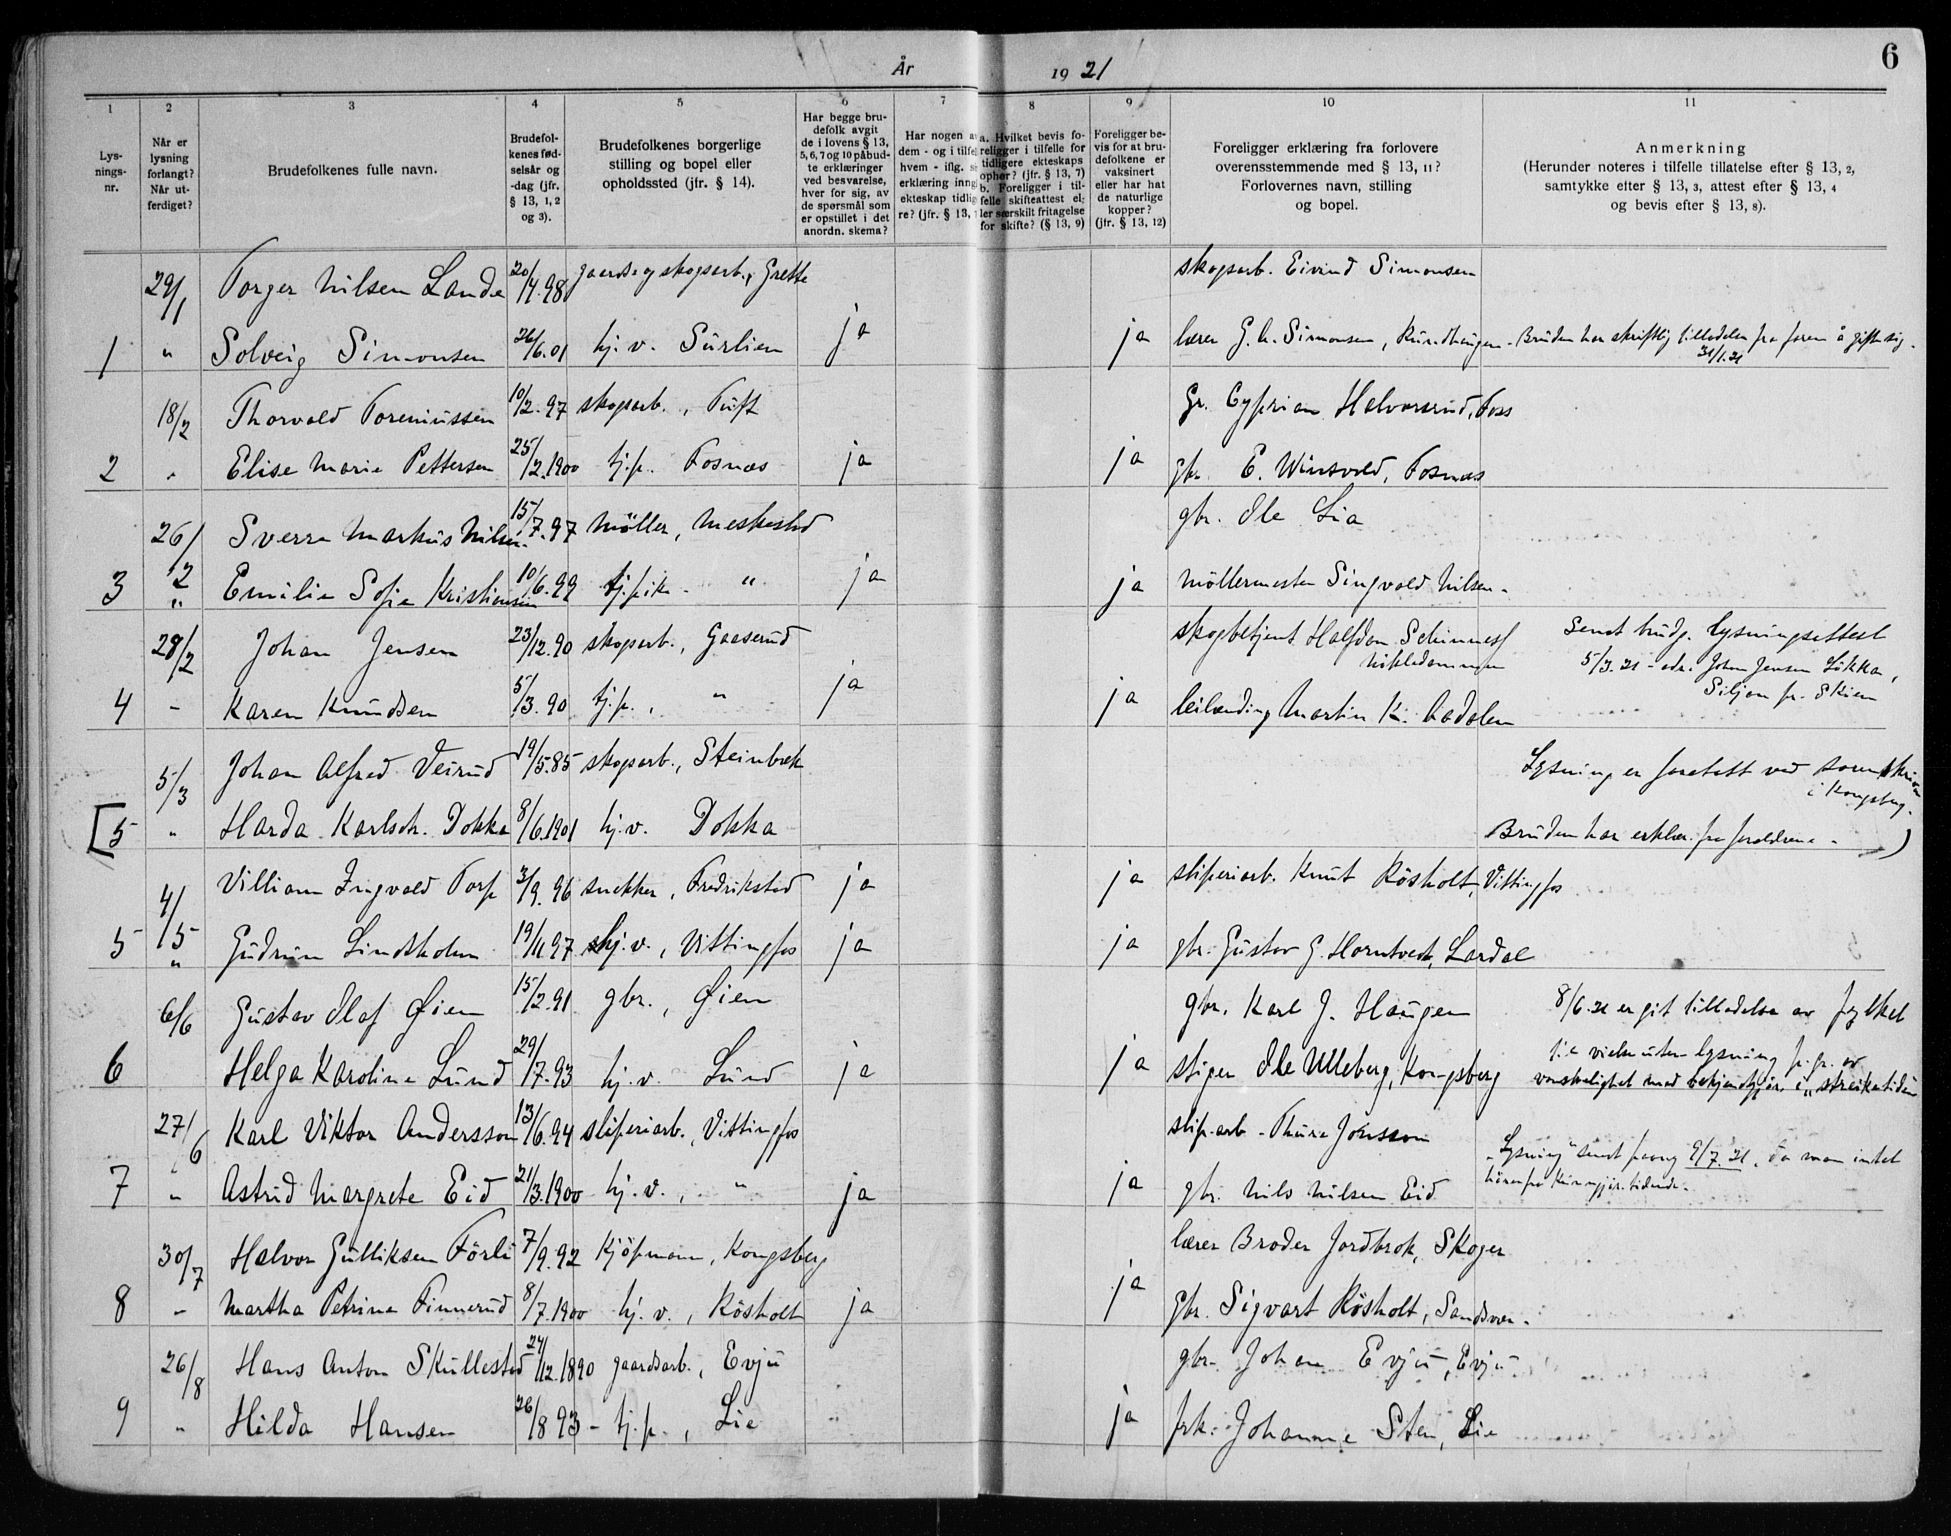 6
År 1921
1 2 3 4 5 6 7 8 9 10 11
Lysningsnr.
Når er lysning forlangt? Når utferdiget?
Brudefolkenes fulle navn.
Brudefolkenes fødselsår og -dag (jfr. § 13, 1, 2 og 3).
Brudefolkenes borgerlige stilling og bopel eller opholdssted (jfr. § 14).
Har begge brudefolk avgit de i lovens § 13, 5, 6, 7 og 10 påbudte erklæringer ved besvarelse, hver for sig, av de spørsmål som er opstillet i det anordn. skema?
Har nogen a
dem - og i tilfel
hvem - iflg. s
erklæring inng
ekteskap tidlig
re? (jfr. § 13,
a. Hvilket bevis foreligger i tilfelle for tidligere ekteskaps ophør? (jfr. § 13, 7)
b. Foreligger i tilfelle skifteattest eller særskilt fritagelse for skifte? (§ 13, 9)
Foreligger bevis for at brudefolkene er vaksinert eller har hat de naturlige kopper? (jfr. § 13, 12)
Foreligger erklæring fra forlovere overensstemmende med § 13, 11? Forlovernes navn, stilling og bopel.
Anmerkning (Herunder noteres i tilfelle tillatelse efter § 13, 2, samtykke efter § 13, 3, attest efter § 13, 4 og bevis efter § 13, 8).
29/1 Torger Nilsen Lande 20/4.98 gaards- og skogsarb., Grette skogsarb. Eivind Simonsen
1 " Solveig Simonsen 26/6.01 hj. v. Sürlien ja ja lærer G. h. Simonsen, - Brüden har skriftlig tilladelse fra faren å gifte sig. 31/1.21
18/2 Thorvald Toreniussen 10/2.97 skogsarb., Tüft Gr. Cyprian Halvorsrüd, Foss
2 " Elise Marie Pettersen 25/2.1900 tj.p. Fosnæs ja ja gbr. E. Winsvold, Fosnæs
26/2 Sverre Markus Nilsen 15/7.97 Möller, Meskestad gbr. Ole Lia
3 " Emilie Sofie Kristiansen 10/6.99 tj.pike - " ja ja Möllermester Singvald Nilsen -
28/2 Johan Jensen 23/12.90 skogsarb., Gaaserüd skogbetjent Halfdan Sendt brudg. lysningsattest
4 - Karen Knüdsen 5/3.90 tj.p., " ja ja leilænding Martin K. 5/3.21 - adr. Johan Jensen Lökka, Siljan pr. Skien
5/3 Johan Alfred Veirüd 19/5.85 skogsarb., Steinbæk Lysning er foretatt ved sorenskriver i Kongsberg.
[5 " Harda Karlsdtr. Dokka 8/6.1901 hj. v. Dokka Brüden har erklær. fra forældrene - )
4/5 Villiam Ingvald Torp 3/9.96 snekker, Fredrikstad ja ja sliperiarb. Knut Rösholt, Vittingfos
5 " Güdrün Lindholm 19/11.97 hj. v., Vittingfos ja ja gbr. Güstav G. Horntvedt, Lardal
6/6 Güstav Olaf Øien 15/2.91 gbr., Øien gbr. Karl J. Haügen 8/6.21 er git tilladelse av fylket
6 Helga Karoline Lünd 29/7.93 hj. v. Lünd ja ja stiger Ole Ulleberg, Kongsberg til vielse uten lysning p. gr. av
vanskelighet med bekjendtgjør. i "streiketiden
27/6 Karl Viktor Andersson 13/6.94 sliperiarb., Vittingfos slip.arb - Thure Jonsson
7 " Astrid Margrete Eid 21/3.1900 hj. v., " ja ja gbr. Nils Nilsen Eid "Lysning" sendt paany 9/7.21, da man intet
hörer fra Kunngjör. tidende.
30/7 Halvor Gülliksen Förli 7/9.92 Kjöpmann, Kongsberg lærer Broder Jordbrek, Skoger
8 - Martha Petrine Finnerüd 8/7.1900 hj. v., Rösholt ja ja Gbr. Sigvart Rösholt, Sandsvær.
26/8 Hans Anton Sküllestad 24/12.1890 gaardsarb., Evjü gbr. Johan Evjü, Evjü
9 " Hilda Hansen 26/8 93 - tj.p., Lie ja frk. Johanne Sten, Lie